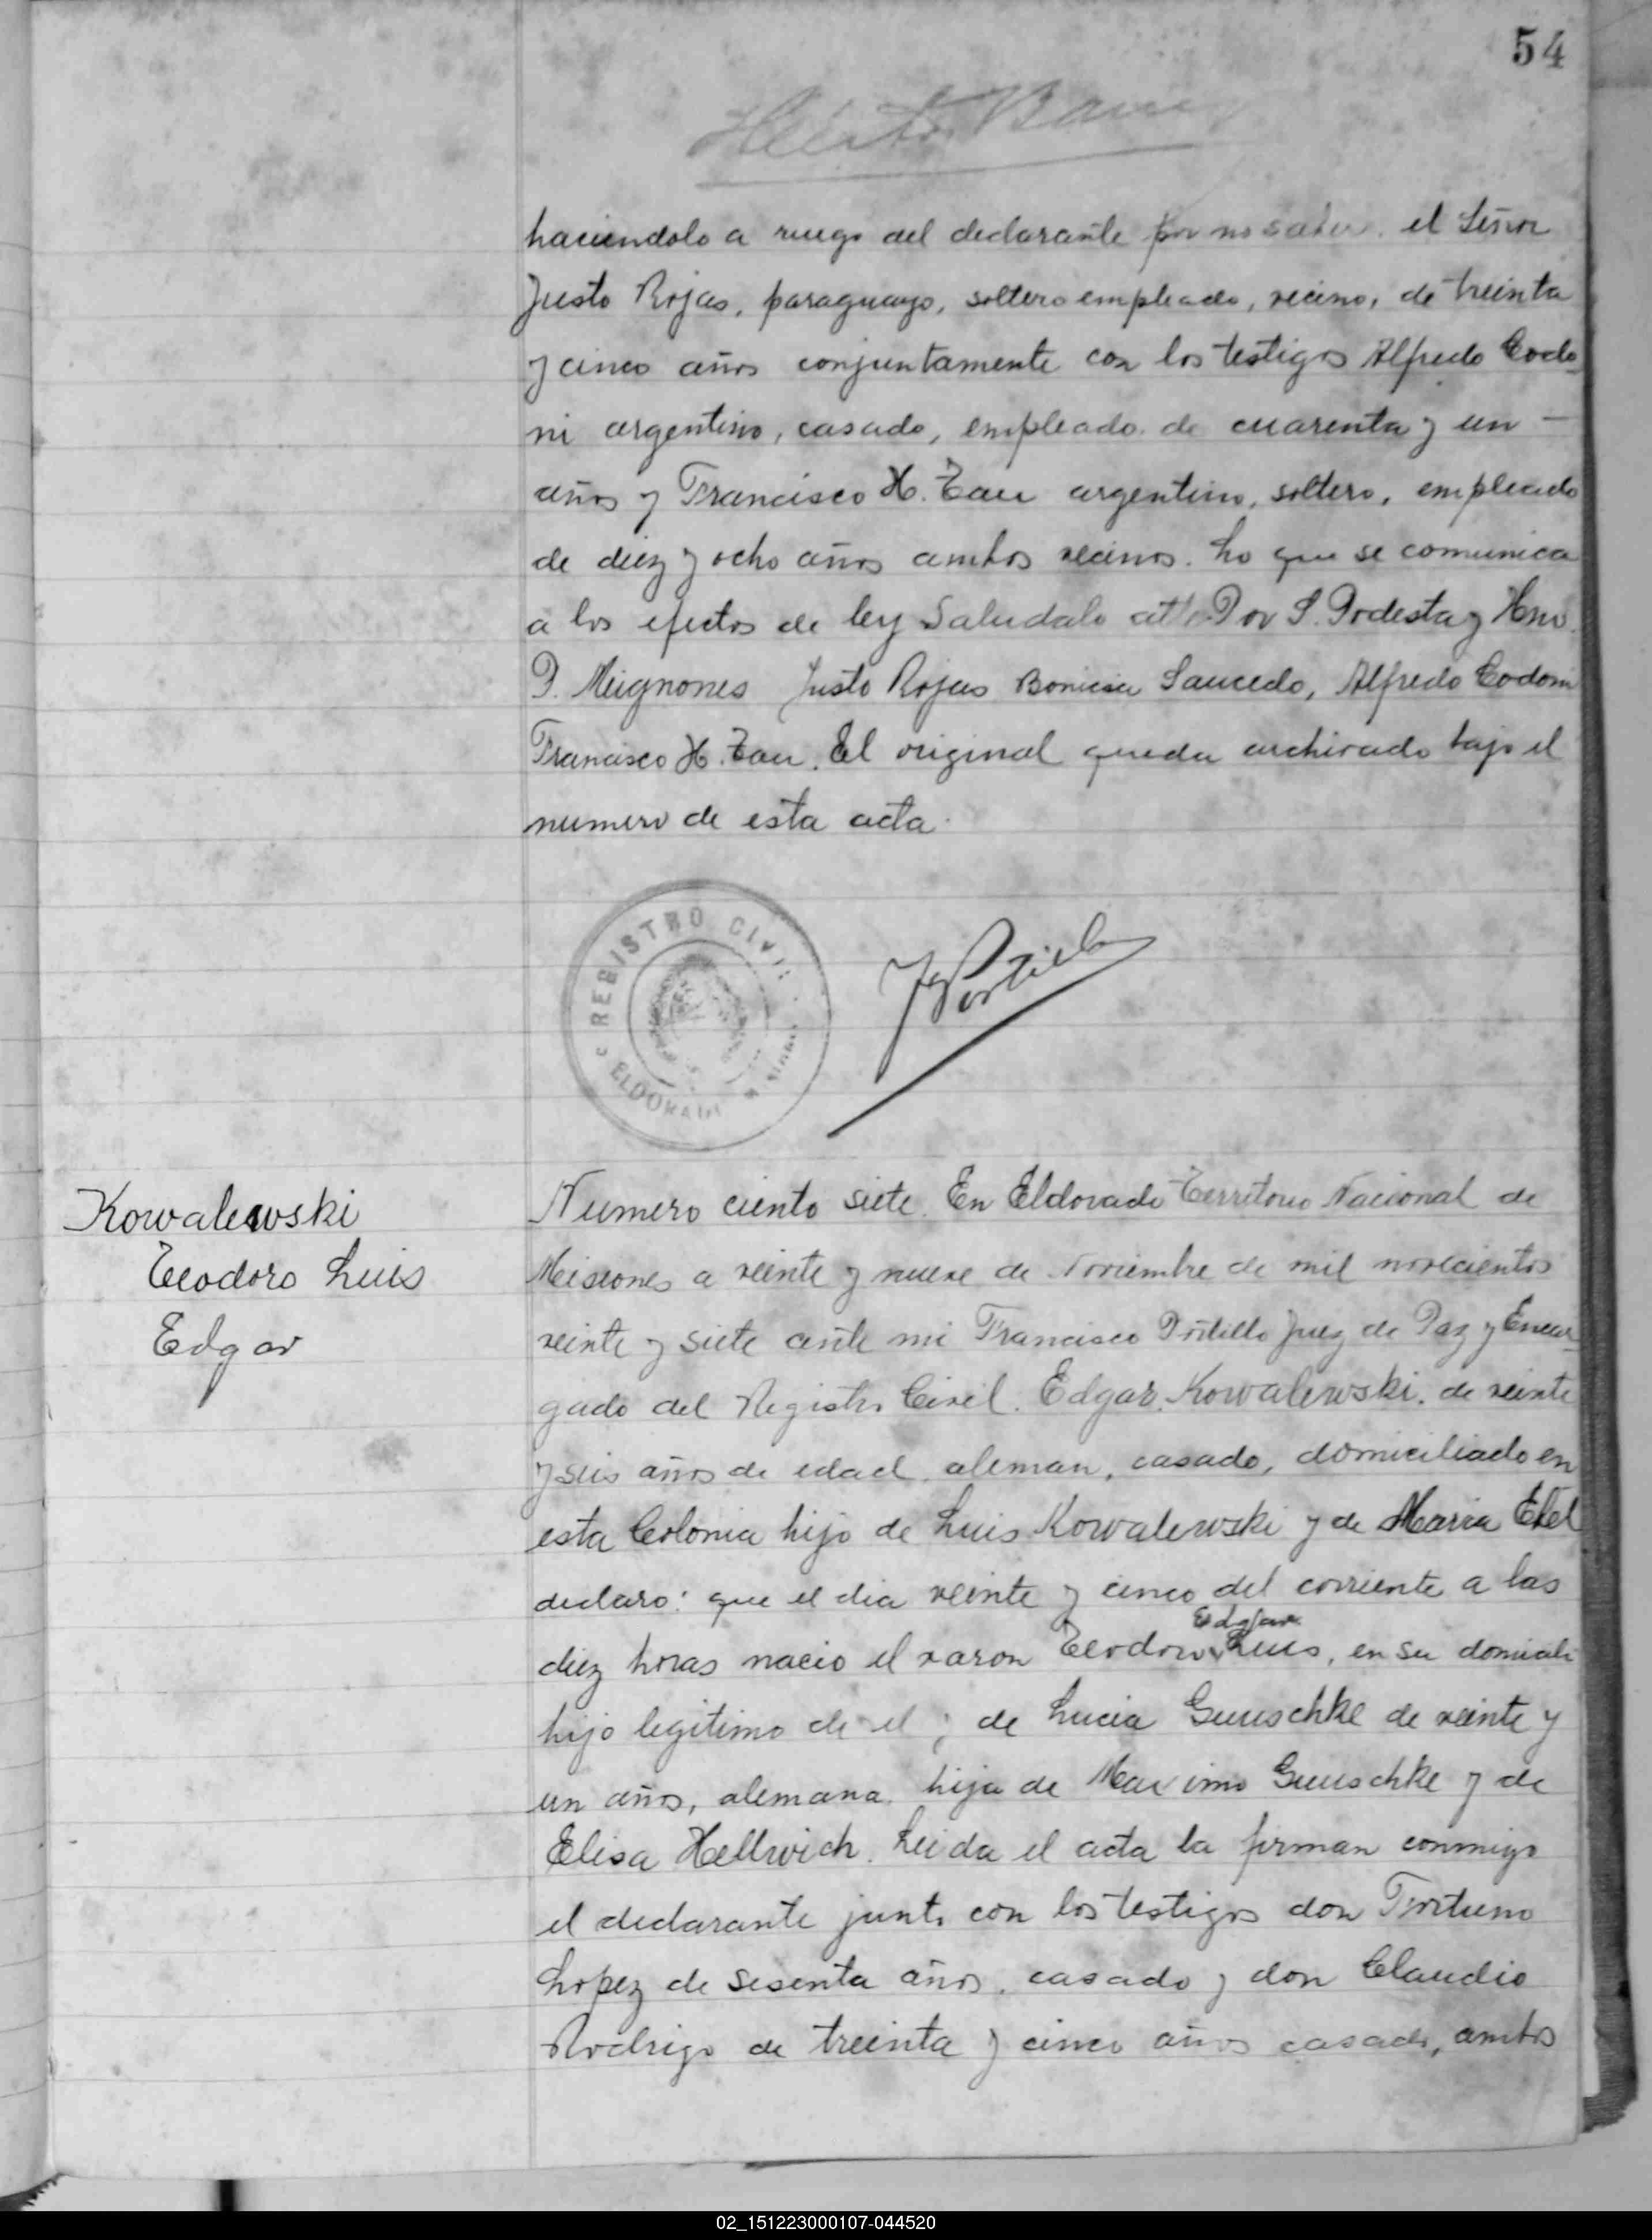 54
haciendolo a ruego del declarante por no saber. el Señor
Justo Rojas, paraguayo, soltero empleado, vecino, de treinta
y cinco años conjuntamente con los testigos Alfredo Codo
ni argentino, casado, empleado de cuarenta y un —
años y Francisco H. Zau argentino, soltero, empleado
de diez y ocho años ambos vecinos. Lo que se comunica
a los efectos de ley Saludalo atte Por S. Podesta y Hno.
P. Mignones Justo Rojas Saucedo, Alfredo Codoni
Francisco H. Zau. El original queda archivado bajo el
numero de esta acta.
REGISTRO CIVIL
ELDORADO
Kowalewski
Teodoro Luis
Edgar
Numero ciento siete. En Eldorado Territorio Nacional de
Misiones a veinte y nueve de Noviembre de mil novecientos
veinte y siete ante mi Francisco Portillo Juez de Paz y Encar-
gado del Registro Civil. Edgar Kowalewski. de veinte
y seis años de edad, aleman, casado, domiciliado en
esta Colonia hijo de Luis Kowalewski y de Maria
declaro: que el dia veinte y cinco del corriente a las
Edgar
diez horas nacio el varon Teodoro Luis, en su domicili
hijo legitimo de el y de Lucia Guuschke de veinte y
un años, alemana. hija de Maximo Guuschke y de
Elisa Hellwich. Leida el acta la firman conmigo
el declarante junto con los testigos don Fortuno
Lopez de sesenta años, casado y don Claudio
Rodrigo de treinta y cinco años casado, ambos
02_151223000107-044520